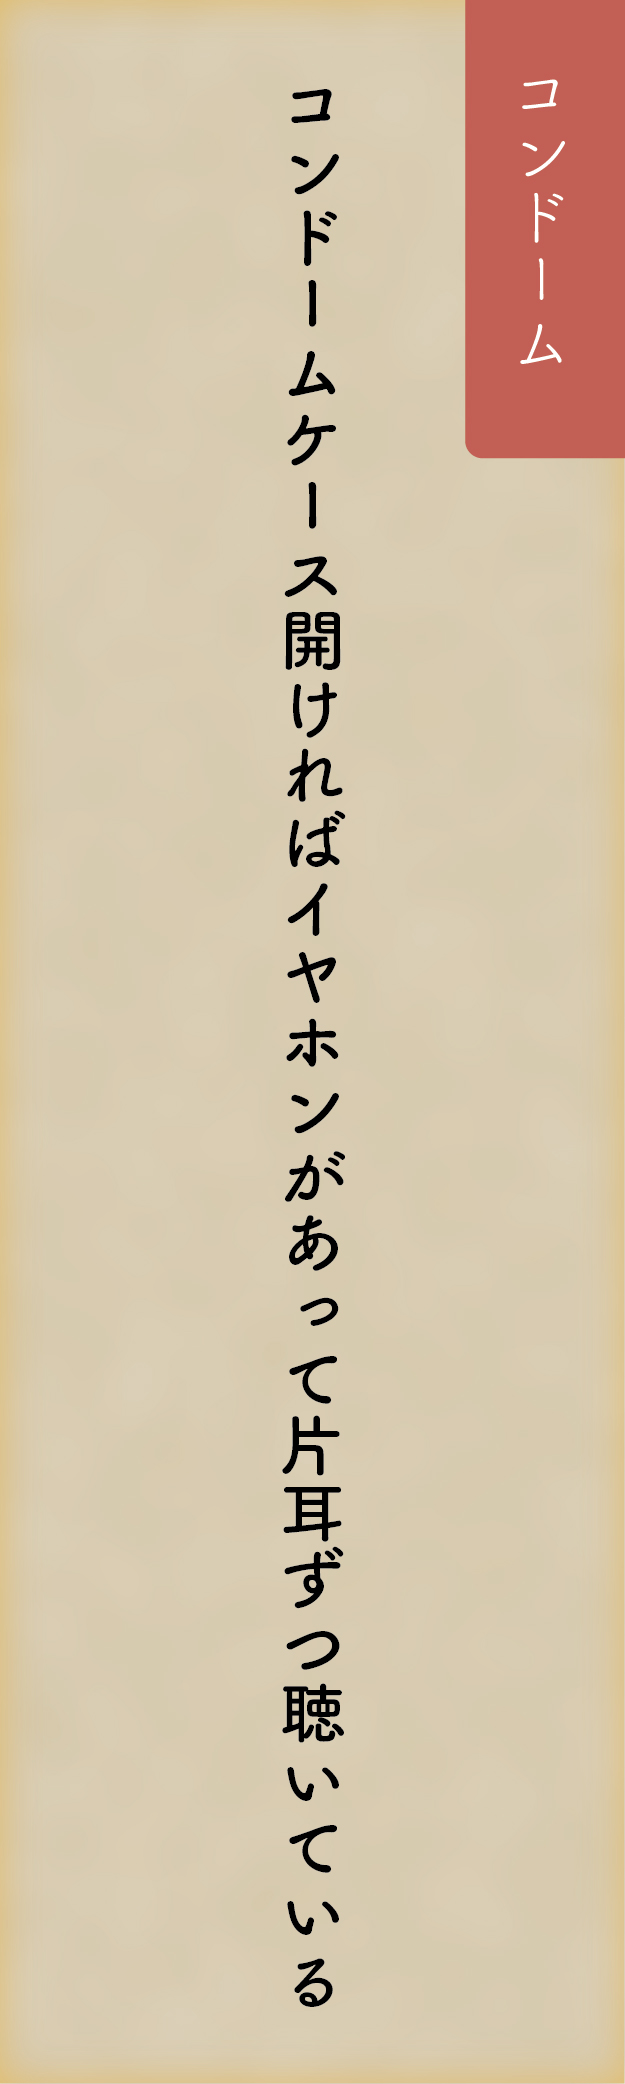 コンドーム
コンドームケース開ければイヤホンがあって片耳ずつ聴いている